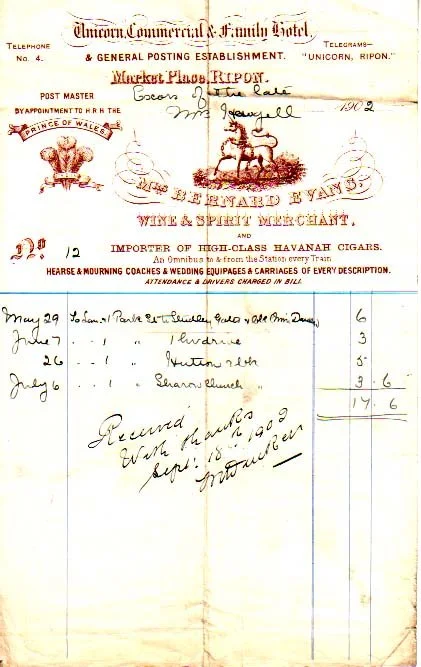 Unicorn, Commercial & Family Hotel,
TELEPHONE
No. 4.
& GENERAL POSTING ESTABLISHMENT.
TELEGRAMS—
"UNICORN, RIPON."
Market Place, RIPON.
POST MASTER
BY APPOINTMENT TO H R H THE
PRINCE OF WALES
of the late
Mrs
1902
MRS BERNARD EVANS,
WINE & SPIRIT MERCHANT,
AND
IMPORTER OF HIGH-CLASS HAVANAH CIGARS.
No 12
An Omnibus to & from the Station every Train
HEARSE & MOURNING COACHES & WEDDING EQUIPAGES & CARRIAGES OF EVERY DESCRIPTION.
ATTENDANCE & DRIVERS CHARGED IN BILL.
May 29 To Lan & 1 Park to Studley Gates & 6
June 7 " " 1 " 3
26 " " 1 " Hutton & bk 5
July 6 " " 1 " Sharow Church " 3 . 6
17 . 6
Received
With thanks
Sept. 18th 1902